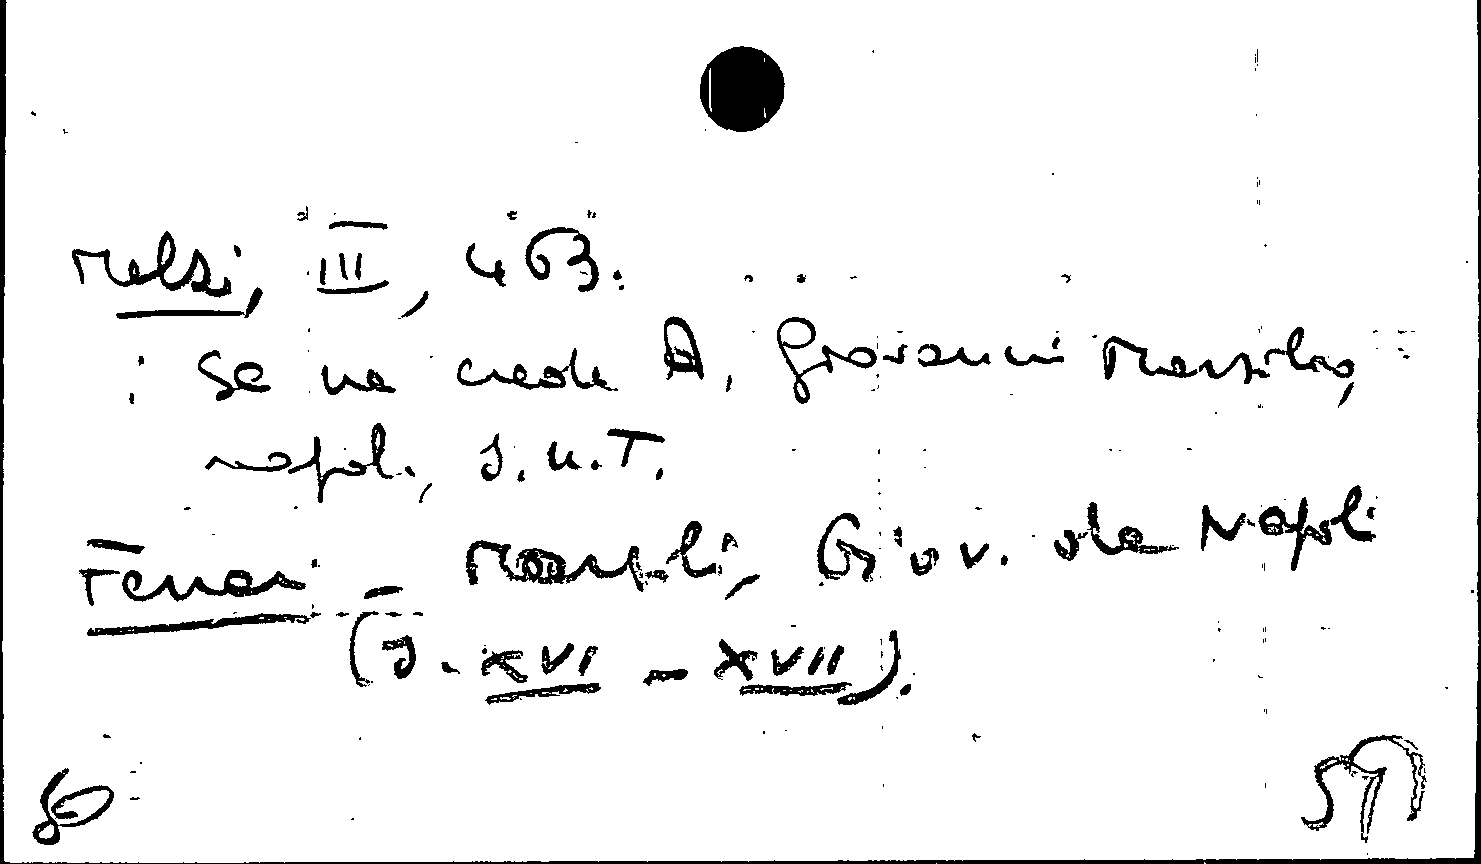 Melzi, III, 463.
: Se ne crede A. Giovanni Marsilio,
napol., s.n.T.
Ferrari - Marsili, Giov. da Napoli
(s. XVI - XVII).